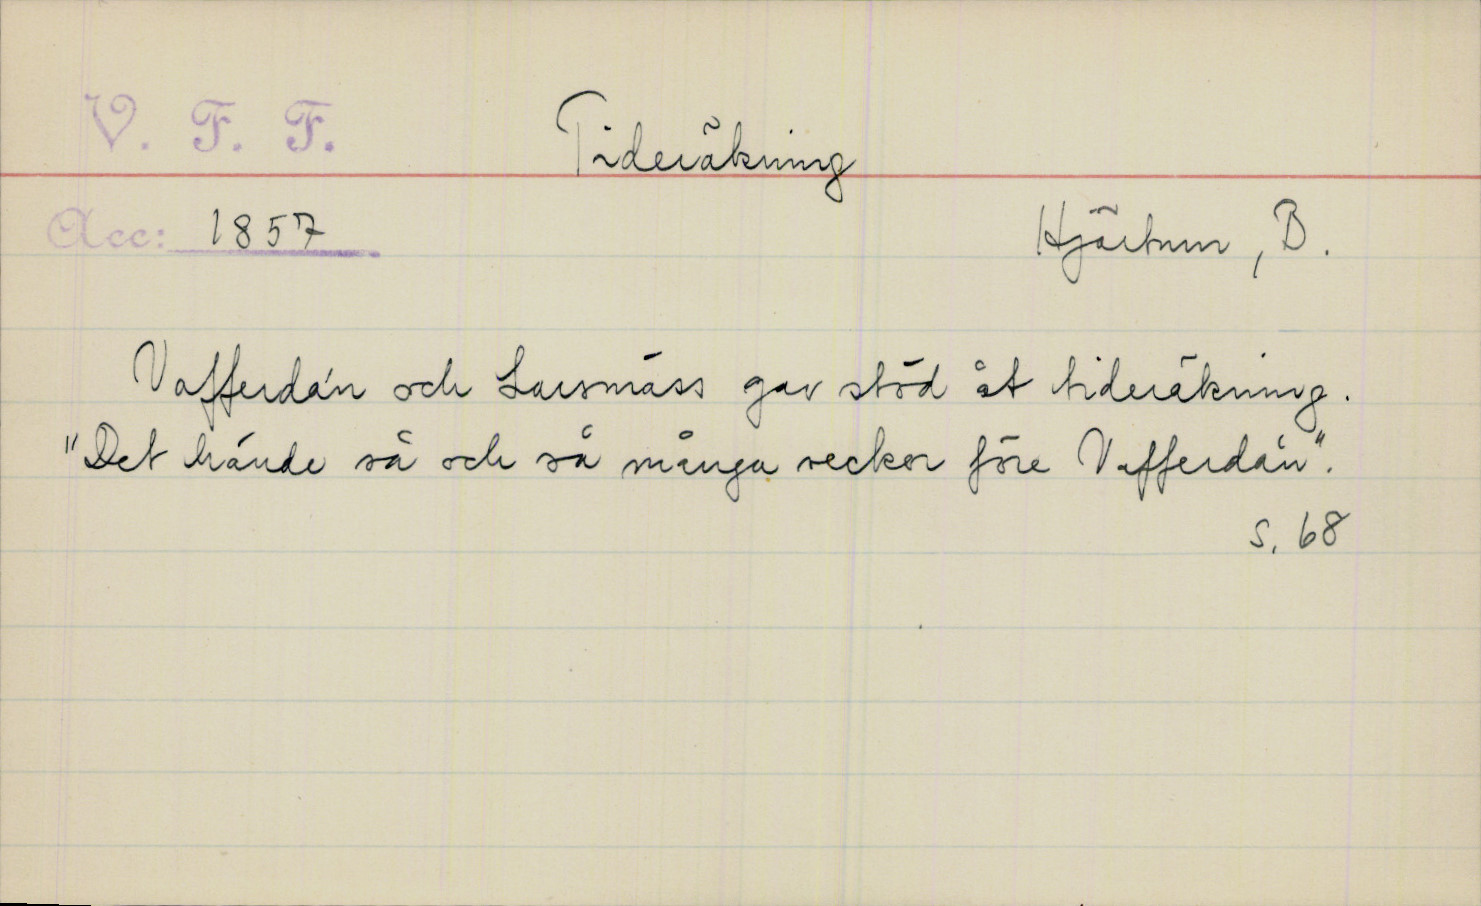 V. F. F.
Tideräkning
Acc: 1857
Hjärtum, B.
Vafferdán och Larsmäss gav stöd åt tideräkning.
"Det hände så och så många veckor före Vafferdán".
s. 68